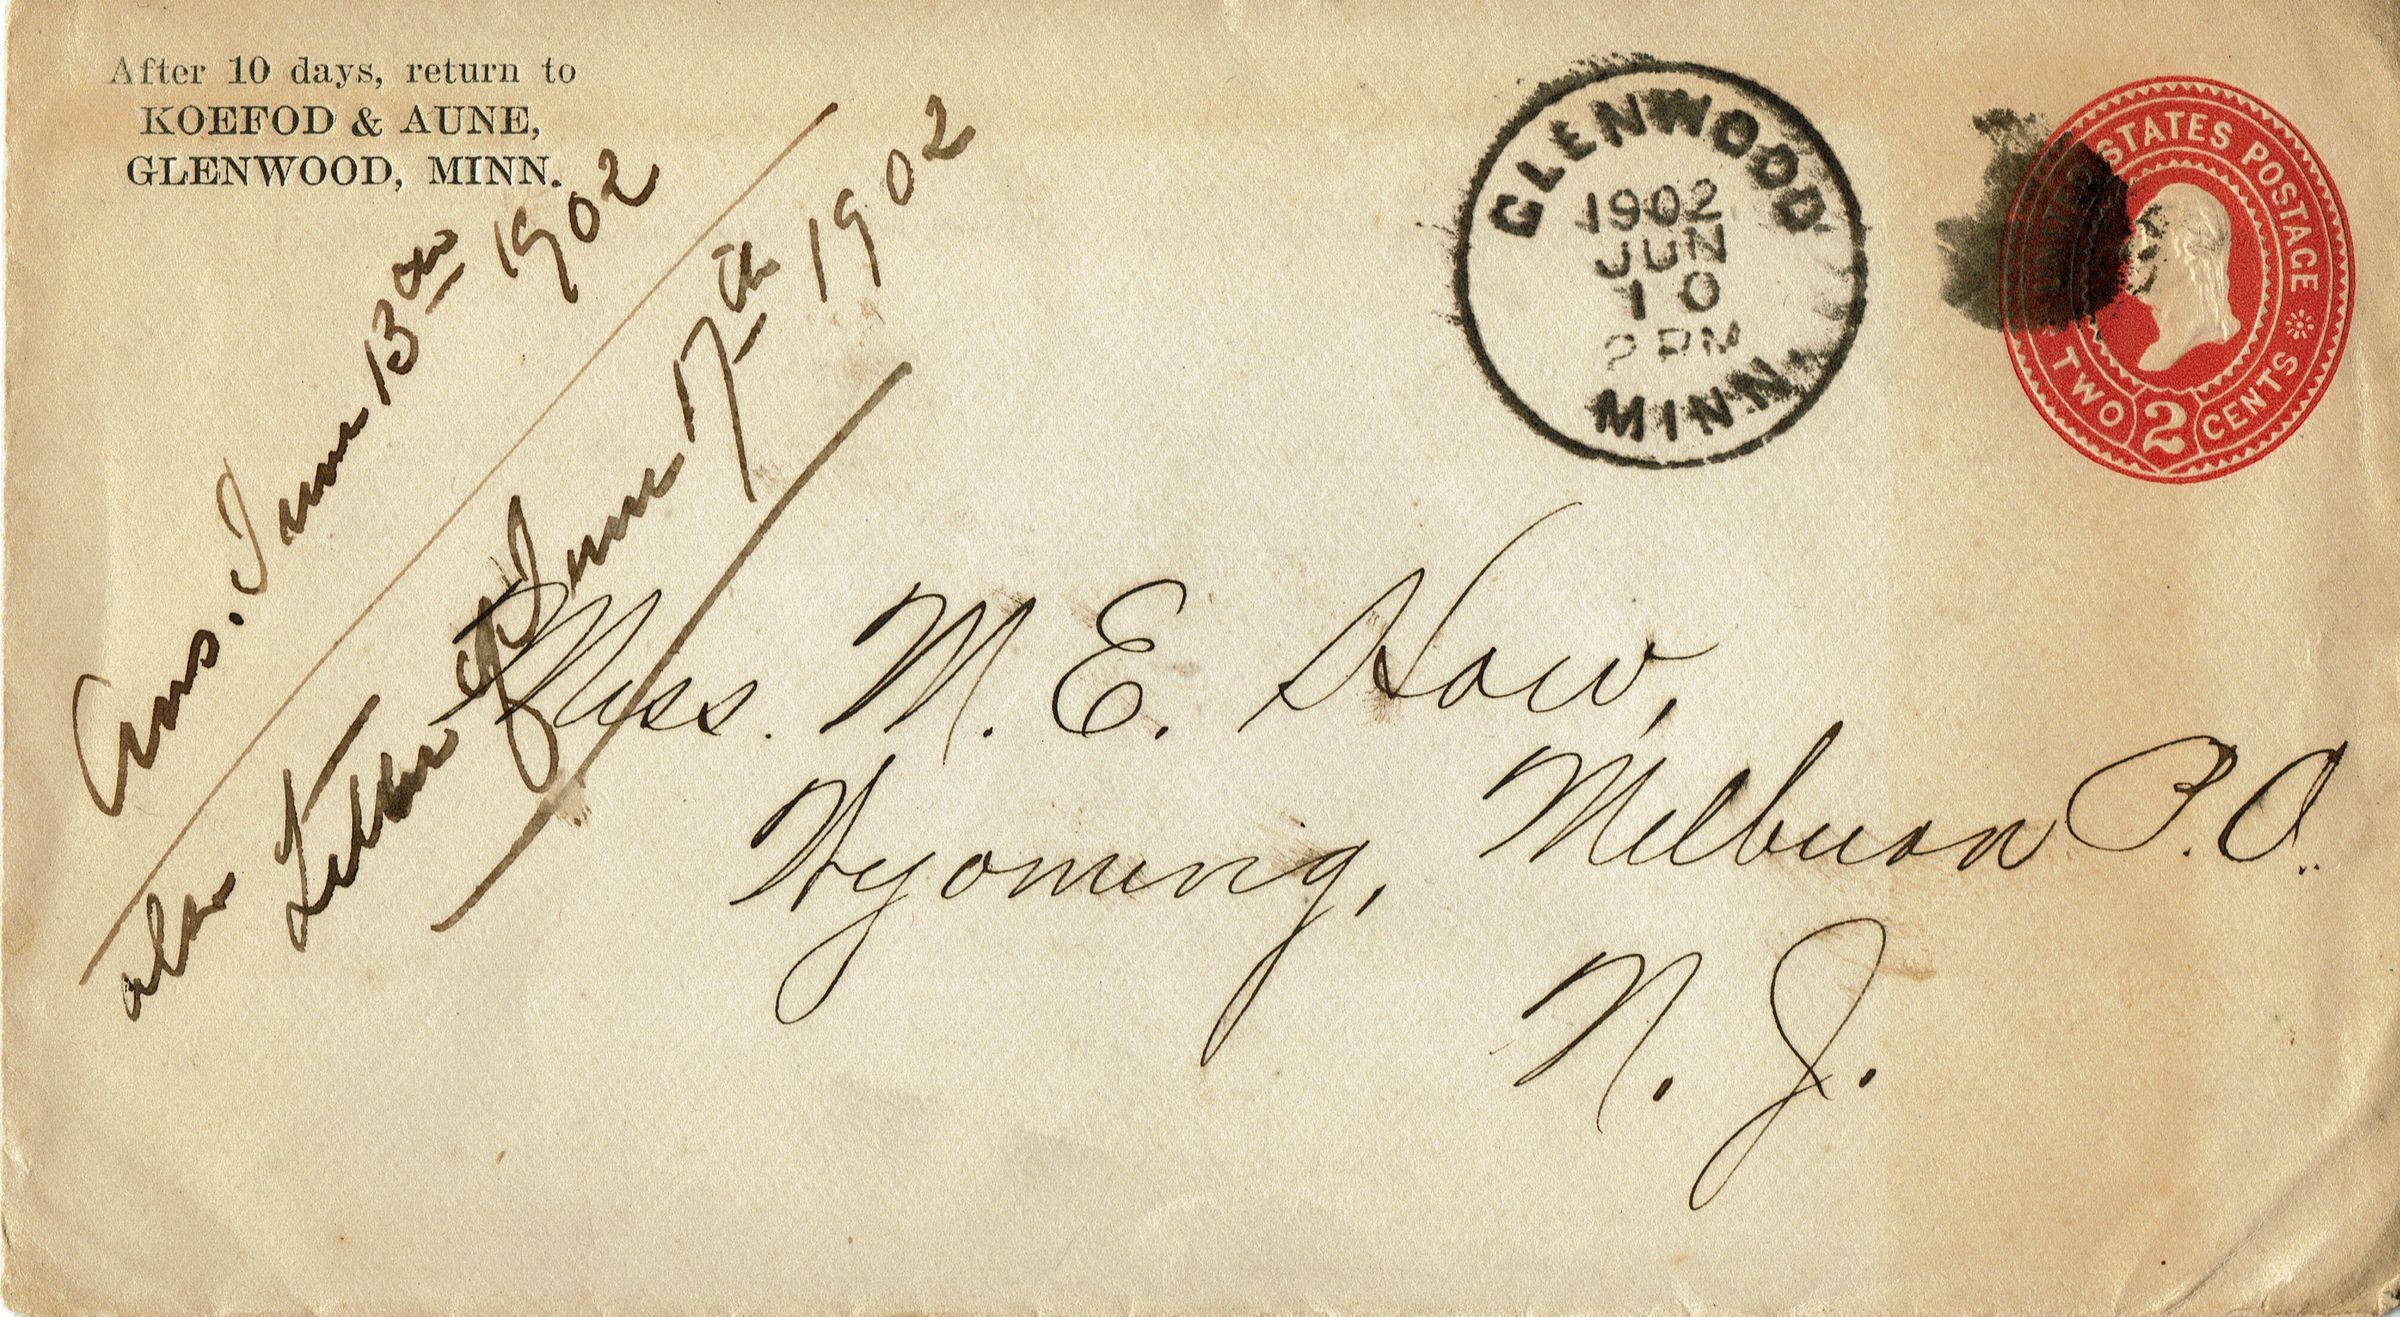 After 10 days, return to
KOEFOD & AUNE,
GLENWOOD, MINN.
Ans. June 13th 1902
also Letter of June 17th 1902
GLENWOOD
1902
JUN
10
2 PM
MINN.
UNITED STATES POSTAGE
TWO 2 CENTS
Miss. M. E. How,
Wyoming, Melburn P.O.
N. J.